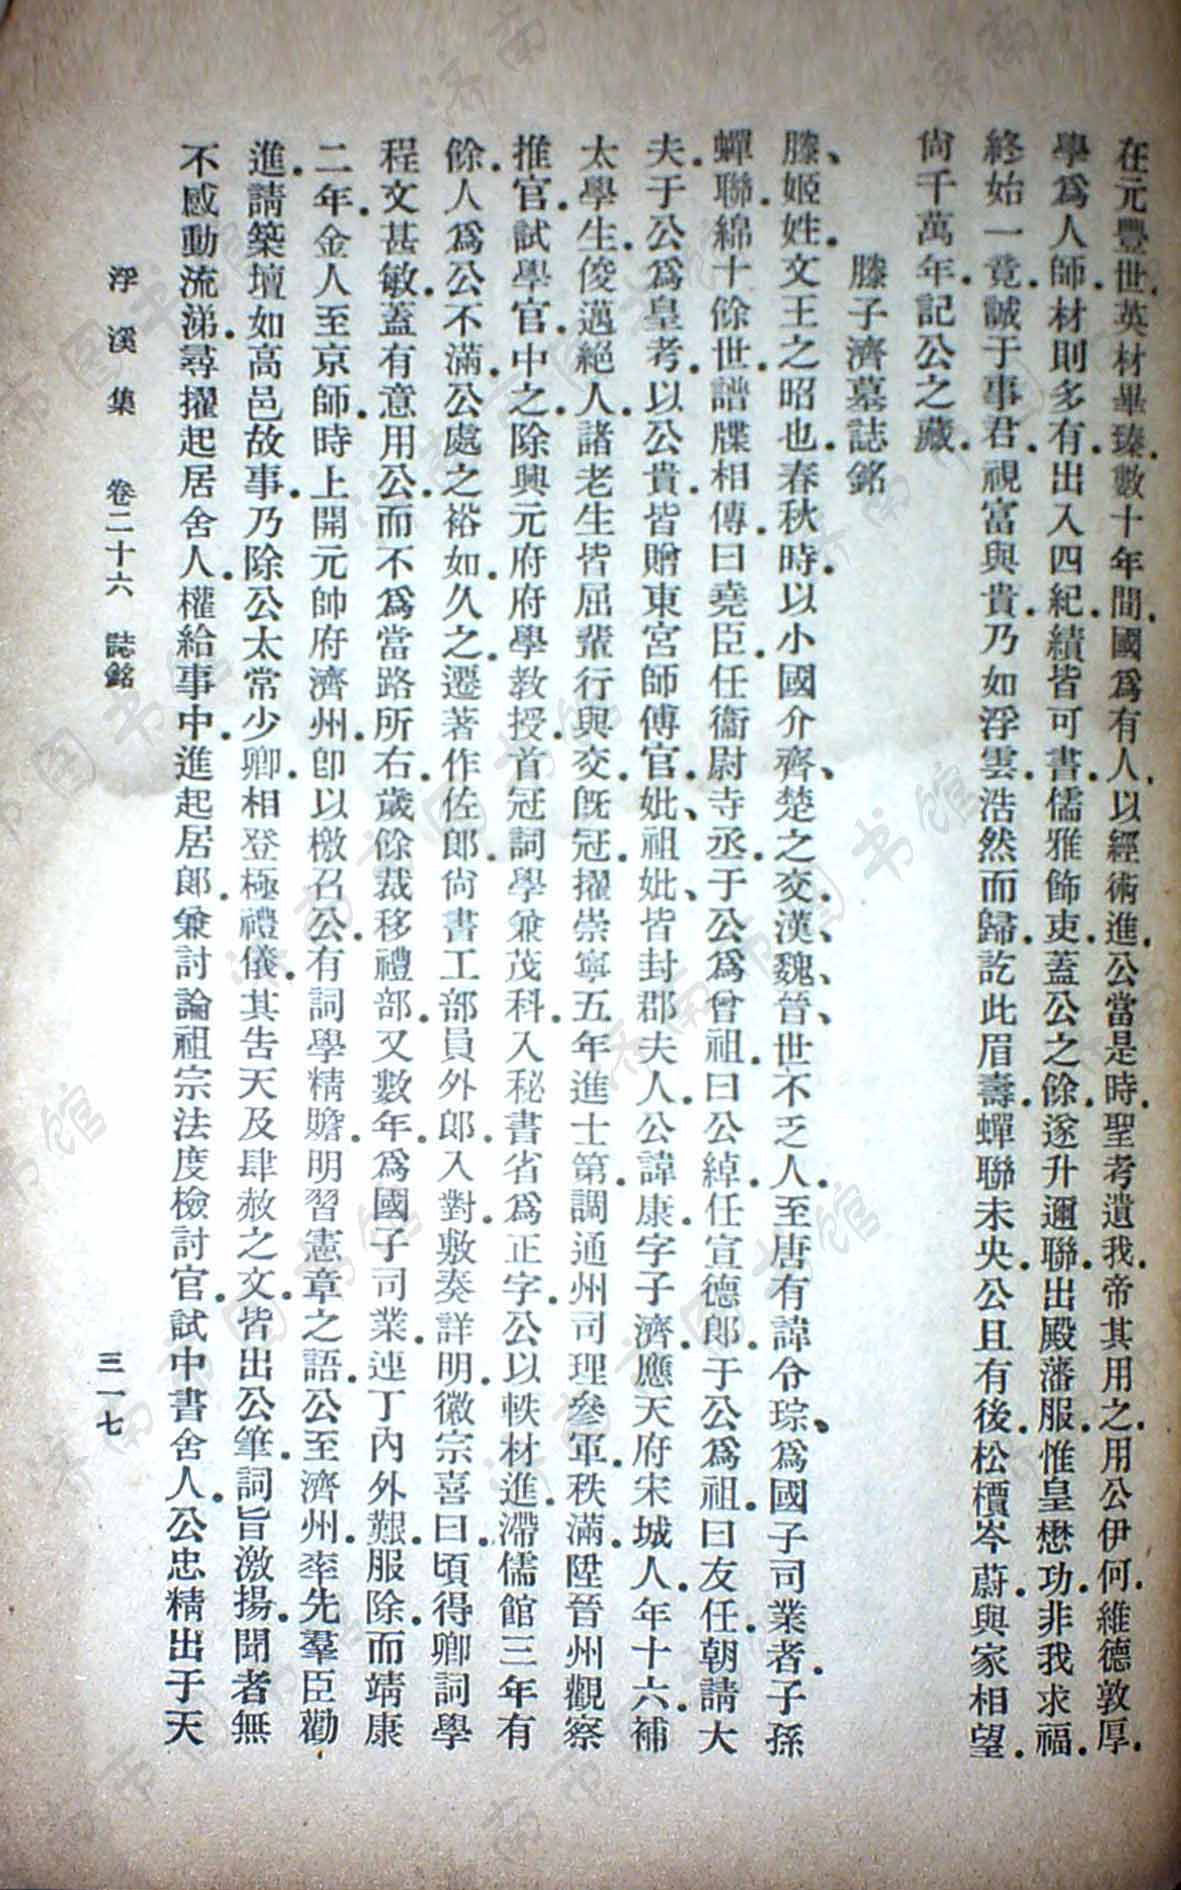 在元豐世英材畢臻數十年間國爲有人以經術進公當是時聖考遺我帝其用之用公伊何維德敦厚
學爲人師材則多有出入四紀績皆可書儒雅飾吏蓋公之餘遂升邇聯出殿藩服惟皇懋功非我求福
終始一竟誠于事君視富與貴乃如浮雲浩然而歸訖此眉壽蟬聯未央公且有後松檟岑蔚與家相望
尙千萬年記公之藏
滕子濟墓誌銘
滕姬姓文王之昭也春秋時以小國介齊楚之交漢魏晉世不乏人至唐有諱令琮爲國子司業者子孫
蟬聯綿十餘世譜牒相傳曰堯臣任衞尉寺丞于公爲曾祖曰公綽任宣德郎于公爲祖曰友任朝請大
夫于公爲皇考以公貴皆贈東宮師傅官妣祖妣皆封郡夫人公諱康字子濟應天府宋城人年十六補
太學生俊邁絕人諸老生皆屈輩行與交旣冠擢崇寧五年進士第調通州司理參軍秩滿陞晉州觀察
推官試學官中之除興元府府學教授首冠詞學兼茂科入秘書省爲正字公以軼材進滯儒館三年有
餘人爲公不滿公處之裕如久之遷著作佐郎尙書工部員外郎入對敷奏詳明徽宗喜曰頃得卿詞學
程文甚敏蓋有意用公而不爲當路所右歲餘裁移禮部又數年爲國子司業連丁內外艱服除而靖康
二年金人至京師時上開元帥府濟州卽以檄召公有詞學精贍明習憲章之語公至濟州率先羣臣勸
進請築壇如高邑故事乃除公太常少卿相登極禮儀其告天及肆赦之文皆出公筆詞旨激揚聞者無
不感動流涕尋擢起居舍人權給事中進起居郎兼討論祖宗法度檢討官試中書舍人公忠精出于天
浮溪集 卷二十六 誌銘
三一七